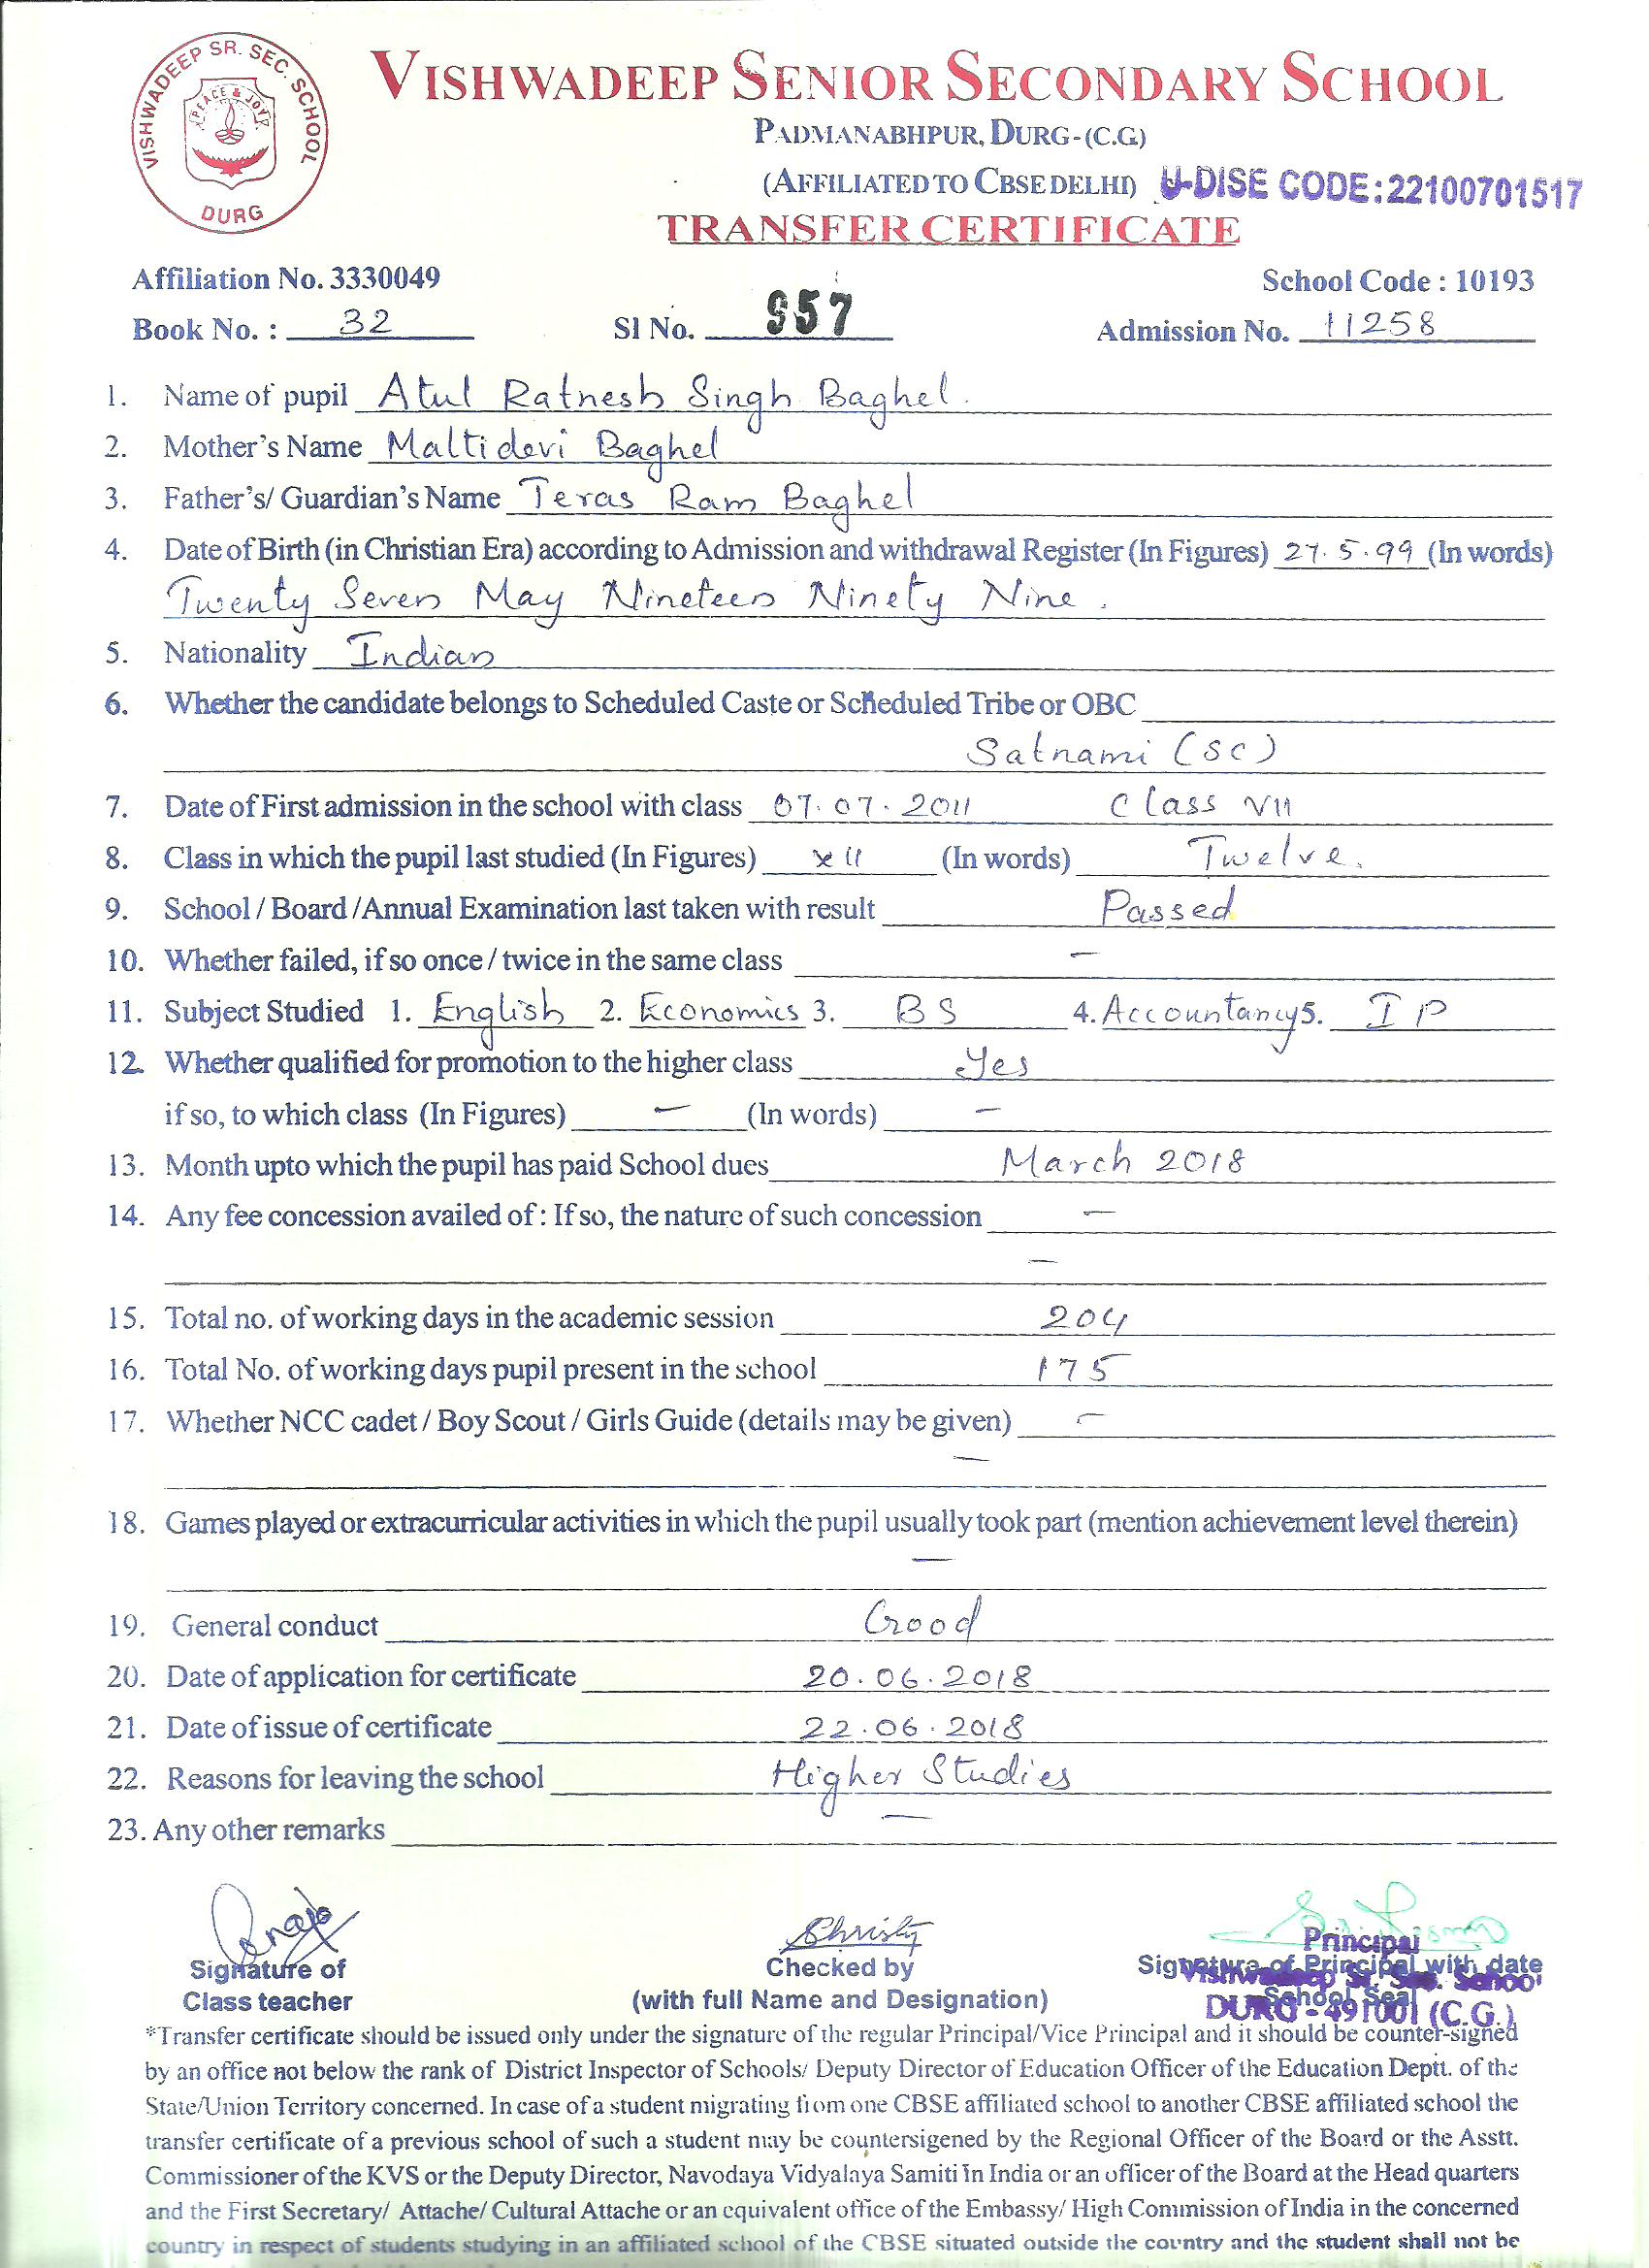 VISHWADEEP SR. SEC. SCHOOL
PEACE & JOY
DURG
VISHWADEEP SENIOR SECONDARY SCHOOL
PADMANABHPUR, DURG-(C.G)
(AFFILIATED TO CBSE DELHI) U-DISE CODE:22100701517
TRANSFER CERTIFICATE
Affiliation No. 3330049 School Code : 10193
Book No. : 32 Sl No. 957 Admission No. 11258
1. Name of pupil Atul Ratnesh Singh Baghel.
2. Mother's Name Maltidevi Baghel
3. Father's/ Guardian's Name Teras Ram Baghel
4. Date of Birth (in Christian Era) according to Admission and withdrawal Register (In Figures) 27.5.99 (In words)
Twenty Seven May Nineteen Ninety Nine.
5. Nationality Indian
6. Whether the candidate belongs to Scheduled Caste or Scheduled Tribe or OBC
Satnami (SC)
7. Date of First admission in the school with class 07.07.2011 Class VII
8. Class in which the pupil last studied (In Figures) XII (In words) Twelve.
9. School / Board /Annual Examination last taken with result Passed
10. Whether failed, if so once / twice in the same class –
11. Subject Studied 1. English 2. Economics 3. BS 4. Accountancy 5. IP
12. Whether qualified for promotion to the higher class Yes
if so, to which class (In Figures) – (In words) –
13. Month upto which the pupil has paid School dues March 2018
14. Any fee concession availed of : If so, the nature of such concession –
–
15. Total no. of working days in the academic session 204
16. Total No. of working days pupil present in the school 175
17. Whether NCC cadet / Boy Scout / Girls Guide (details may be given) –
–
18. Games played or extracurricular activities in which the pupil usually took part (mention achievement level therein)
–
19. General conduct Good
20. Date of application for certificate 20.06.2018
21. Date of issue of certificate 22.06.2018
22. Reasons for leaving the school Higher Studies
23. Any other remarks –
Christy
Principal
Signature of Checked by Signature of Principal with date
Vishwadeep Sr. Sec. School
Class teacher (with full Name and Designation) School Seal
DURG - 491001 (C.G.)
*Transfer certificate should be issued only under the signature of the regular Principal/Vice Principal and it should be counter-signed
by an office not below the rank of District Inspector of Schools/ Deputy Director of Education Officer of the Education Deptt. of the
State/Union Territory concerned. In case of a student migrating from one CBSE affiliated school to another CBSE affiliated school the
transfer certificate of a previous school of such a student may be countersigened by the Regional Officer of the Board or the Asstt.
Commissioner of the KVS or the Deputy Director, Navodaya Vidyalaya Samiti in India or an officer of the Board at the Head quarters
and the First Secretary/ Attache/ Cultural Attache or an equivalent office of the Embassy/ High Commission of India in the concerned
country in respect of students studying in an affiliated school of the CBSE situated outside the country and the student shall not be